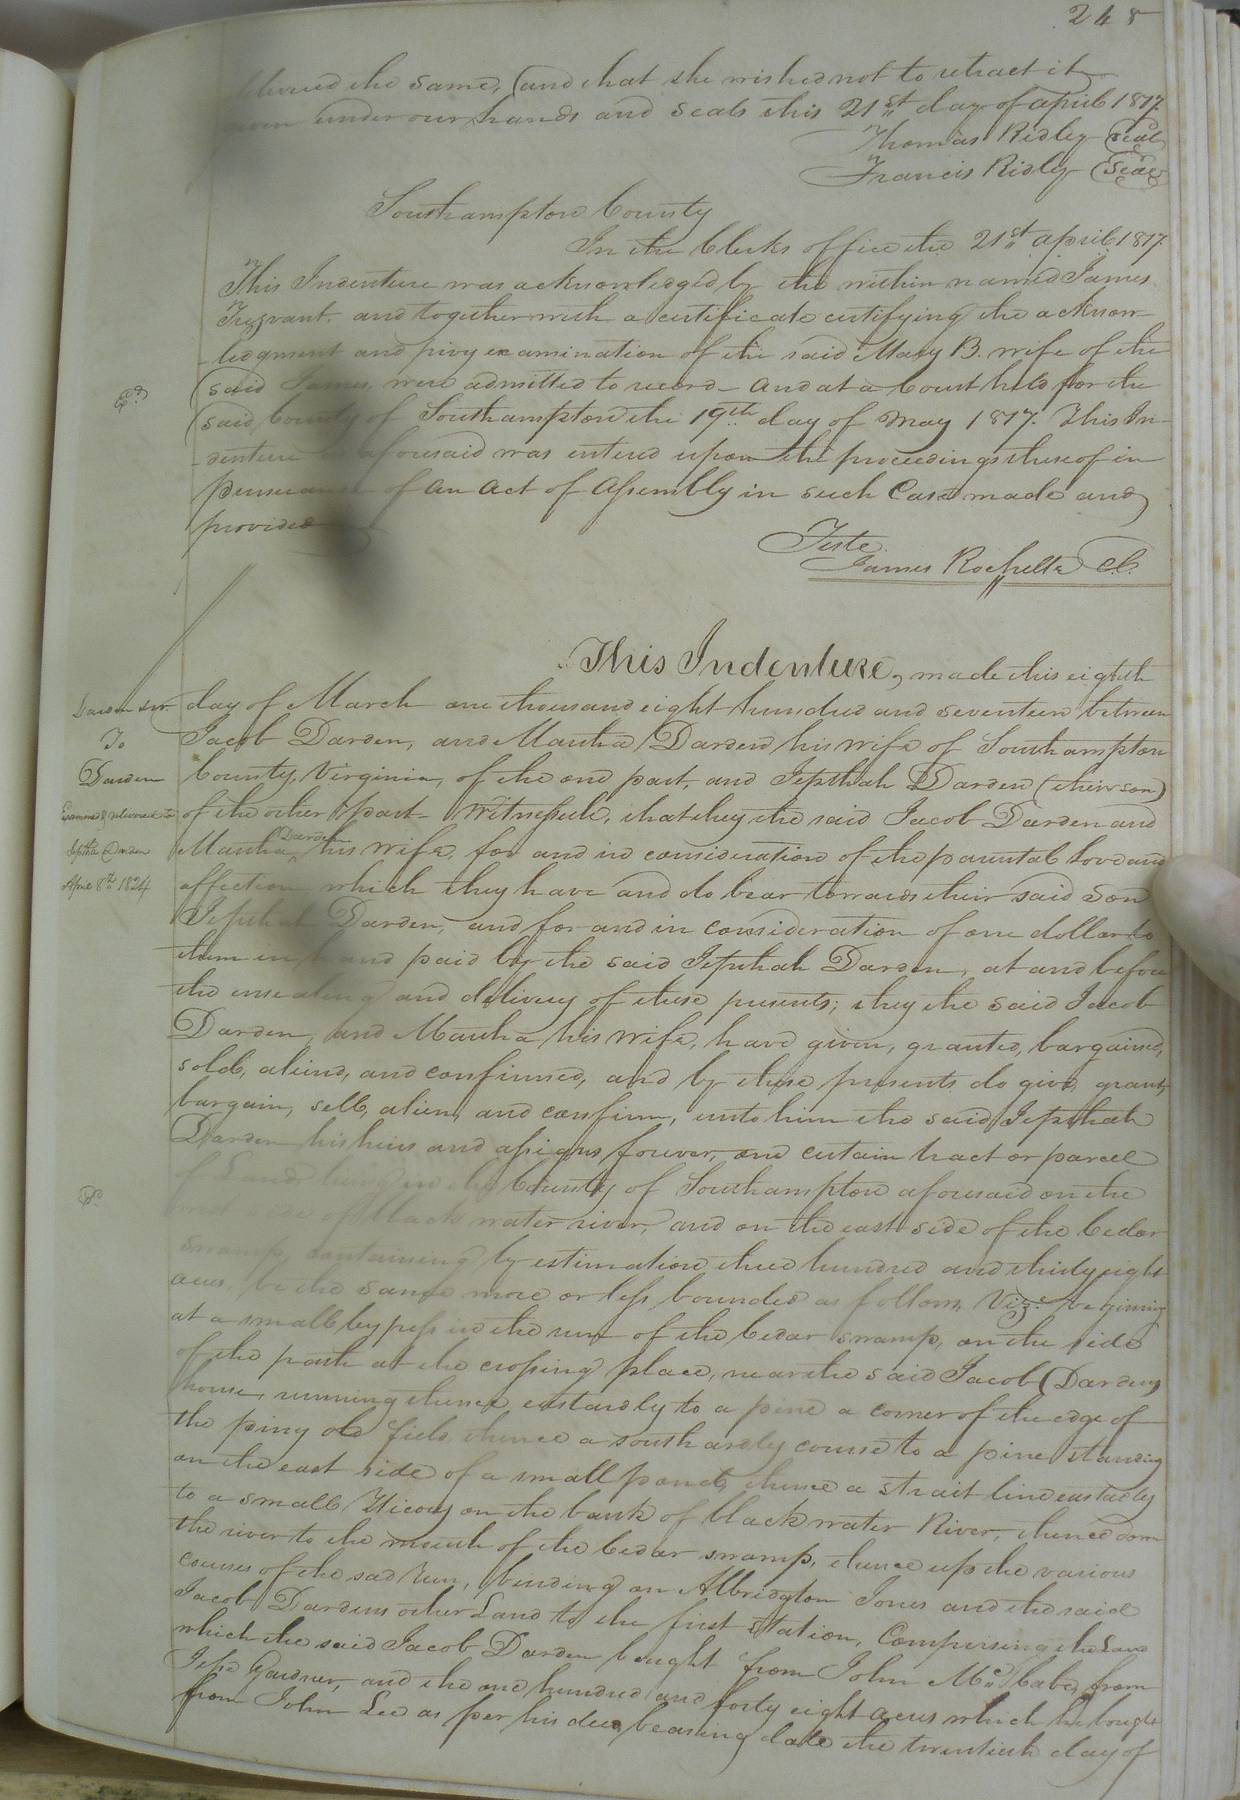 248
livered the same, and that she wished not to retract it
given under our hands and seals this 21st day of april 1817.
Thomas Ridley (Seal)
Francis Ridley (Seal)
Southampton County
In the Clerks office the 21st april 1817.
This Indenture was acknowledged by the within named James
Trezvant. and together with a certificate certifying the acknow-
-ledgment and privy examination of the said Mary B. wife of the
said James were admitted to record - And at a Court held for the
said County of Southampton the 19th day of May 1817. This In-
-denture as aforesaid was entered upon the proceedings thereof in
pursuance of an Act of Assembly in such Case made and
provided
Teste.
James Rochelle Cl.
This Indenture, made this eighth
Darden &ux
day of March one thousand eight hundred and seventeen between
To
Jacob Darden, and Martha Darden his wife of Southampton
Darden
County, Virginia, of the one part, and Jepthah Darden (their son)
Examined & delivered to
of the other part - Witnesseth, that they the said Jacob Darden and
Jeptha Darden
Martha Darden his wife, for and in consideration of the parental love and
April 8th 1824
affection which they have and do bear towards their said Son
Jepthah Darden, and for and in consideration of one dollar to
them in hand paid by the said Jepthah Darden, at and before
the ensealing and delivery of these presents; they the said Jacob
Darden, and Martha his wife, have given, granted, bargained,
sold, aliend, and confirmed, and by these presents do give, grant,
bargain, sell, alien, and confirm, unto him the said Jepthah
Darden his heirs and assigns forever, one certain tract or parcel
of Land lying in the County of Southampton aforesaid on the
west side of black water river, and on the east side of the Cedar
swamp, containing by estimation three hundred and thirty eight
acres, be the same more or less bounded as follows Vizt. beginning
at a small cypress in the run of the Cedar swamp, on the side
of the path at the crossing place, near the said Jacob Dardens
house, running thence eastardly to a pine a corner of the edge of
the piny old field, thence a southardly course to a pine standing
on the east side of a small pond, thence a strait line eastardly
to a small Hicory on the bank of black water River, thence down
the river to the mouth of the Cedar swamp, thence up the various
courses of the sad run, binding on Albridgton Jones and the said
Jacob Dardens other Land to the first station, Compersing the Land
which the said Jacob Darden bought from John McCabe, from
Jesse Gardner, and the one hundred and forty eight acres which he bought
from John Lee as per his deed bearing date the twentieth day of